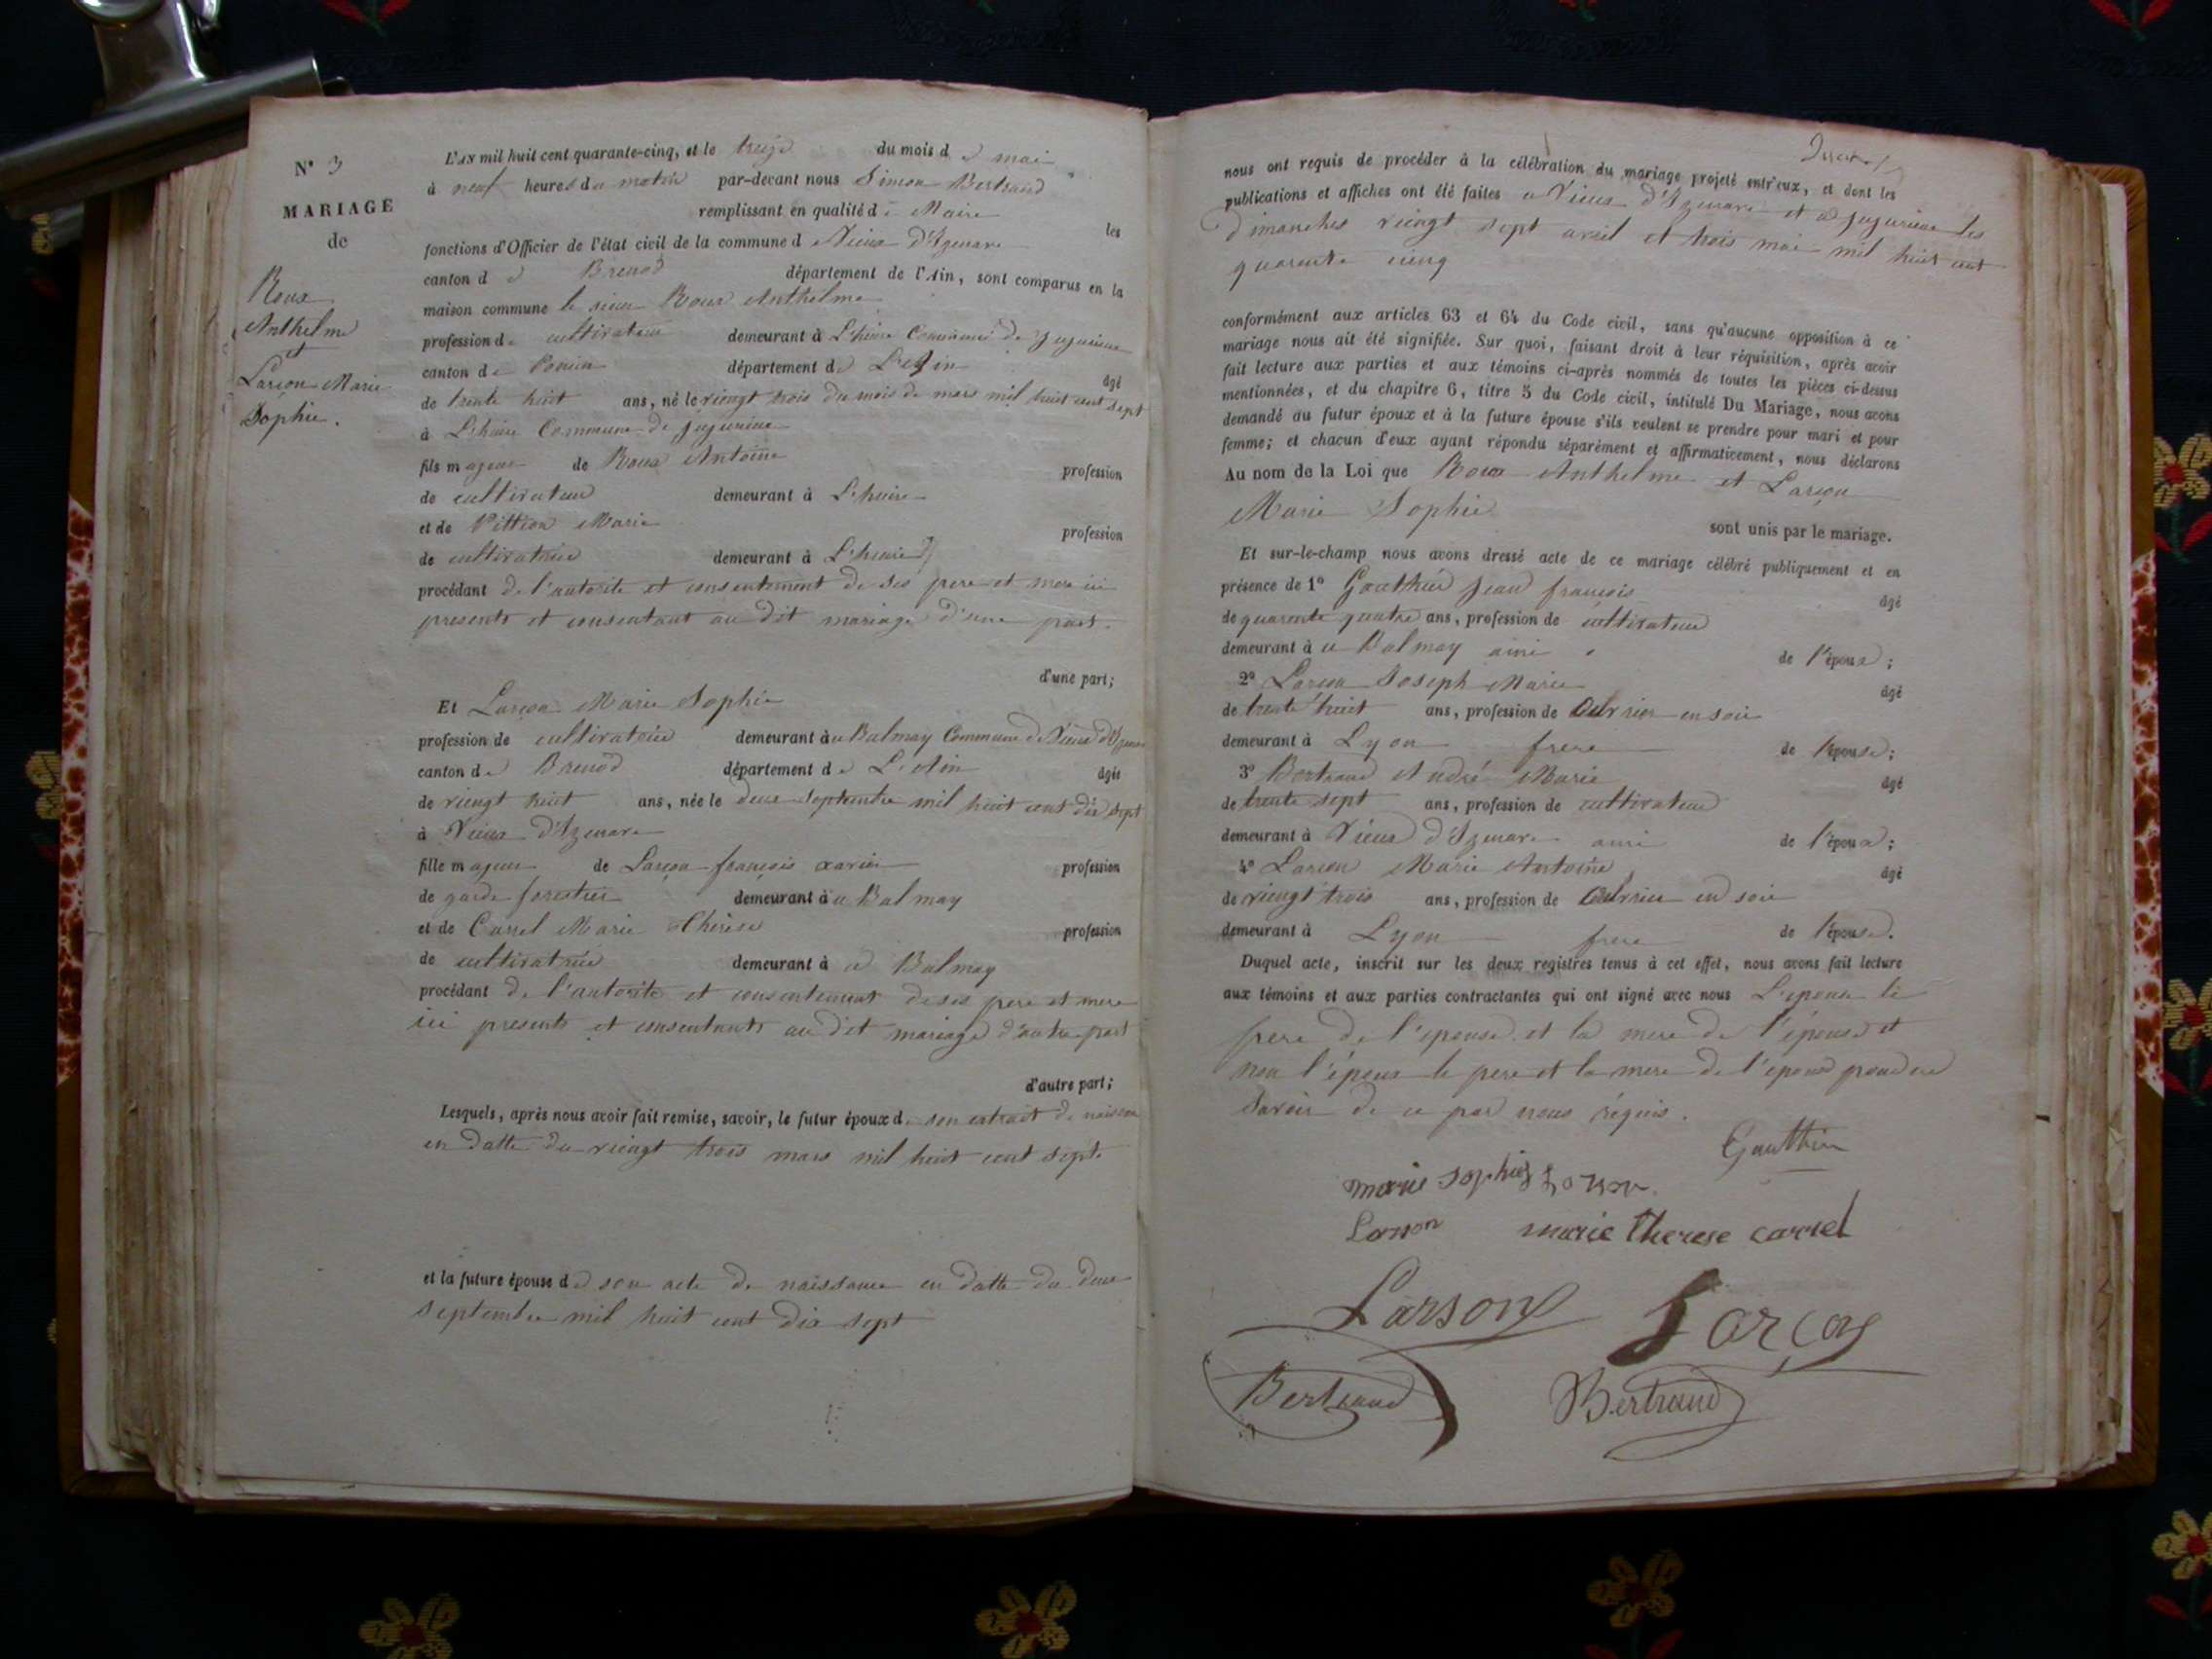 N° 3
MARIAGE
de
Roux
Anthelme
et
Larçon Marie
Sophie.
L'AN mil huit cent quarante-cinq, et le treize du mois de mai
à neuf heures du matin par-devant nous Simon Bertrand
remplissant en qualité de Maire les
fonctions d'Officier de l'état civil de la commune d Vieux d'Izenave
canton de Brenod département de l'Ain, sont comparus en la
maison commune le sieur Roux Anthelme
profession de cultivateur demeurant à L'huire Commune de Jujurieux
canton de Poncin département de L'Ain âgé
de trente huit ans, né le viengt trois du mois de mars mil huit cent sept
à L'huire Commune de Jujurieux
fils majeur de Roux Antoine profession
de cultivateur demeurant à L'huire
et de Pittion Marie profession
de cultivatrice demeurant à L'huire
procédant de l'autorite et consentement de ses pere et mere ici
presents et consentant au dit mariage d'une part.
d'une part;
Et Larçon Marie Sophie
profession de cultivatrice demeurant à u Balmay Commune de Vieux d'Izenave
canton de Brenod département de L'Ain âgée
de viengt huit ans, née le deux septembre mil huit cent dix sept
à Vieux d'Izenave
fille majeur de Larçon françois xavier profession
de garde forestier demeurant à u Balmay
et de Carrel Marie Thérèse profession
de cultivatrice demeurant à u Balmay
procédant de l'autorite et consentement de ses pere et mere
ici presents et consentants au dit mariage d'autre part
d'autre part;
Lesquels, après nous avoir fait remise, savoir, le futur époux de son extrait de naissance
en datte du viengt trois mars mil huit cent sept.
et la future épouse de son acte de naissance en datte du deux
septembre mil huit cent dix sept
nous ont requis de procéder à la célébration du mariage projeté entr'eux, et dont les
publications et affiches ont été faites a Vieux d'Izenave et a Jujurieux les
dimanches viengt sept avril et trois mai mil huit cent
quarente cinq
conformément aux articles 63 et 64 du Code civil, sans qu'aucune opposition à ce
mariage nous ait été signifiée. Sur quoi, faisant droit à leur réquisition, après avoir
fait lecture aux parties et aux témoins ci-après nommés de toutes les pièces ci-dessus
mentionnées, et du chapitre 6, titre 5 du Code civil, intitulé Du Mariage, nous avons
demandé au futur époux et à la future épouse s'ils veulent se prendre pour mari et pour
femme; et chacun d'eux ayant répondu séparément et affirmativement, nous déclarons
Au nom de la Loi que Roux Anthelme et Larçon
Marie Sophie
sont unis par le mariage.
Et sur-le-champ nous avons dressé acte de ce mariage célébré publiquement et en
présence de 1° Gautthier Jean françois âgé
de quarente quatre ans, profession de cultivateur
demeurant à u Balmay ami de l'époux;
2° Larçon Joseph Marie âgé
de trente huit ans, profession de Ouvrier en soie
demeurant à Lyon frere de l'épouse;
3° Bertrand André Marie âgé
de trente sept ans, profession de cultivateur
demeurant à Vieux d'Izenave ami de l'époux;
4° Larçon Marie Antoine âgé
de viengt trois ans, profession de Ouvrier en soie
demeurant à Lyon frere de l'épouse.
Duquel acte, inscrit sur les deux registres tenus à cet effet, nous avons fait lecture
aux témoins et aux parties contractantes qui ont signé avec nous L'épouse le
pere de l'épouse et la mere de l'épouse et
non l'époux le pere et la mere de l'époux pour ne
savoir de ce par nous requis.
Gautthier
marie sophie Larson
Larson marie therese carrel
Larson Larçon
Bertrand Bertrand